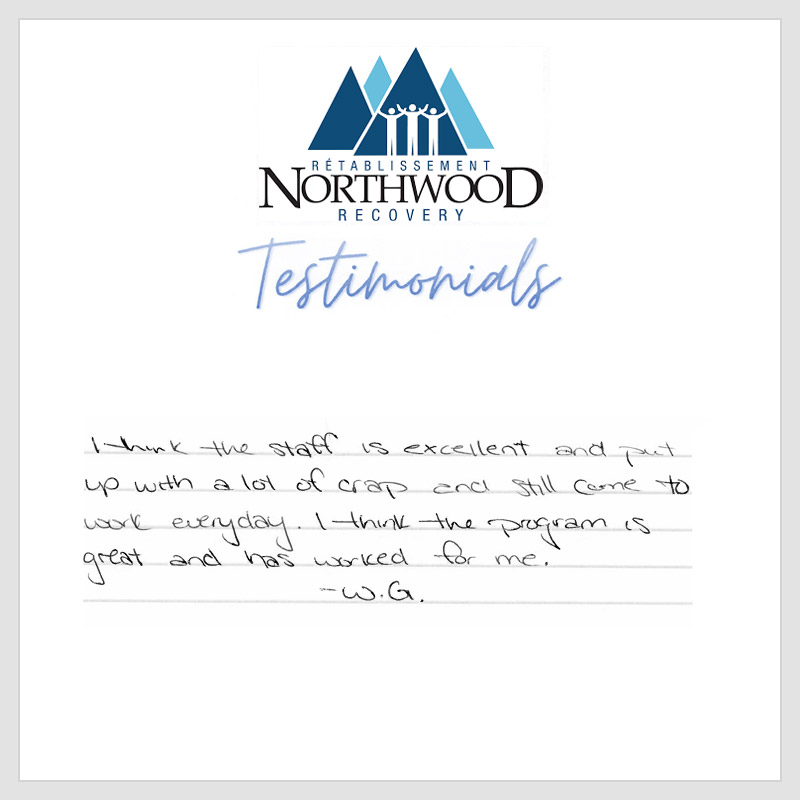 RÉTABLISSEMENT
NORTHWOOD
RECOVERY
Testimonials
I think the staff is excellent and put
up with a lot of crap and still come to
work everyday. I think the program is
great and has worked for me.
-W.G.